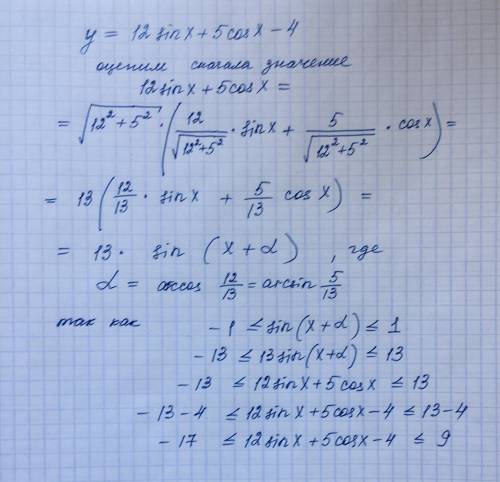 y = 12 sin x + 5 cos x - 4
оценим сначала значение
12 sin x + 5 cos x =
= √(12² + 5²) · (12/√(12² + 5²) · sin x + 5/√(12² + 5²) · cos x) =
= 13 (12/13 · sin x + 5/13 cos x) =
= 13 · sin (x + α) , где
α = arccos 12/13 = arcsin 5/13
так как -1 ≤ sin(x + α) ≤ 1
-13 ≤ 13 sin(x + α) ≤ 13
-13 ≤ 12 sin x + 5 cos x ≤ 13
-13 - 4 ≤ 12 sin x + 5 cos x - 4 ≤ 13 - 4
-17 ≤ 12 sin x + 5 cos x - 4 ≤ 9